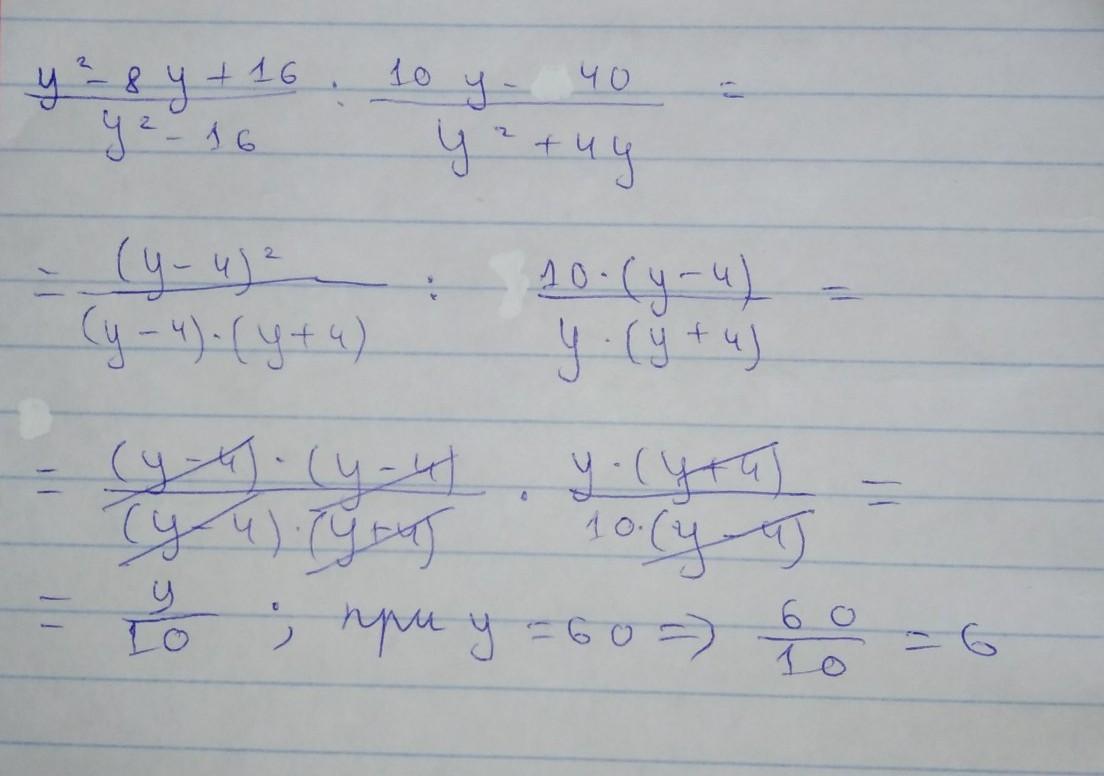 (y² - 8y + 16)/(y² - 16) : (10y - 40)/(y² + 4y) =
= (y - 4)²/((y - 4)·(y + 4)) : 10·(y - 4)/(y·(y + 4)) =
= (y - 4)·(y - 4)/((y - 4)·(y + 4)) · y·(y + 4)/(10·(y - 4)) =
= y/10 ; при y = 60 => 60/10 = 6